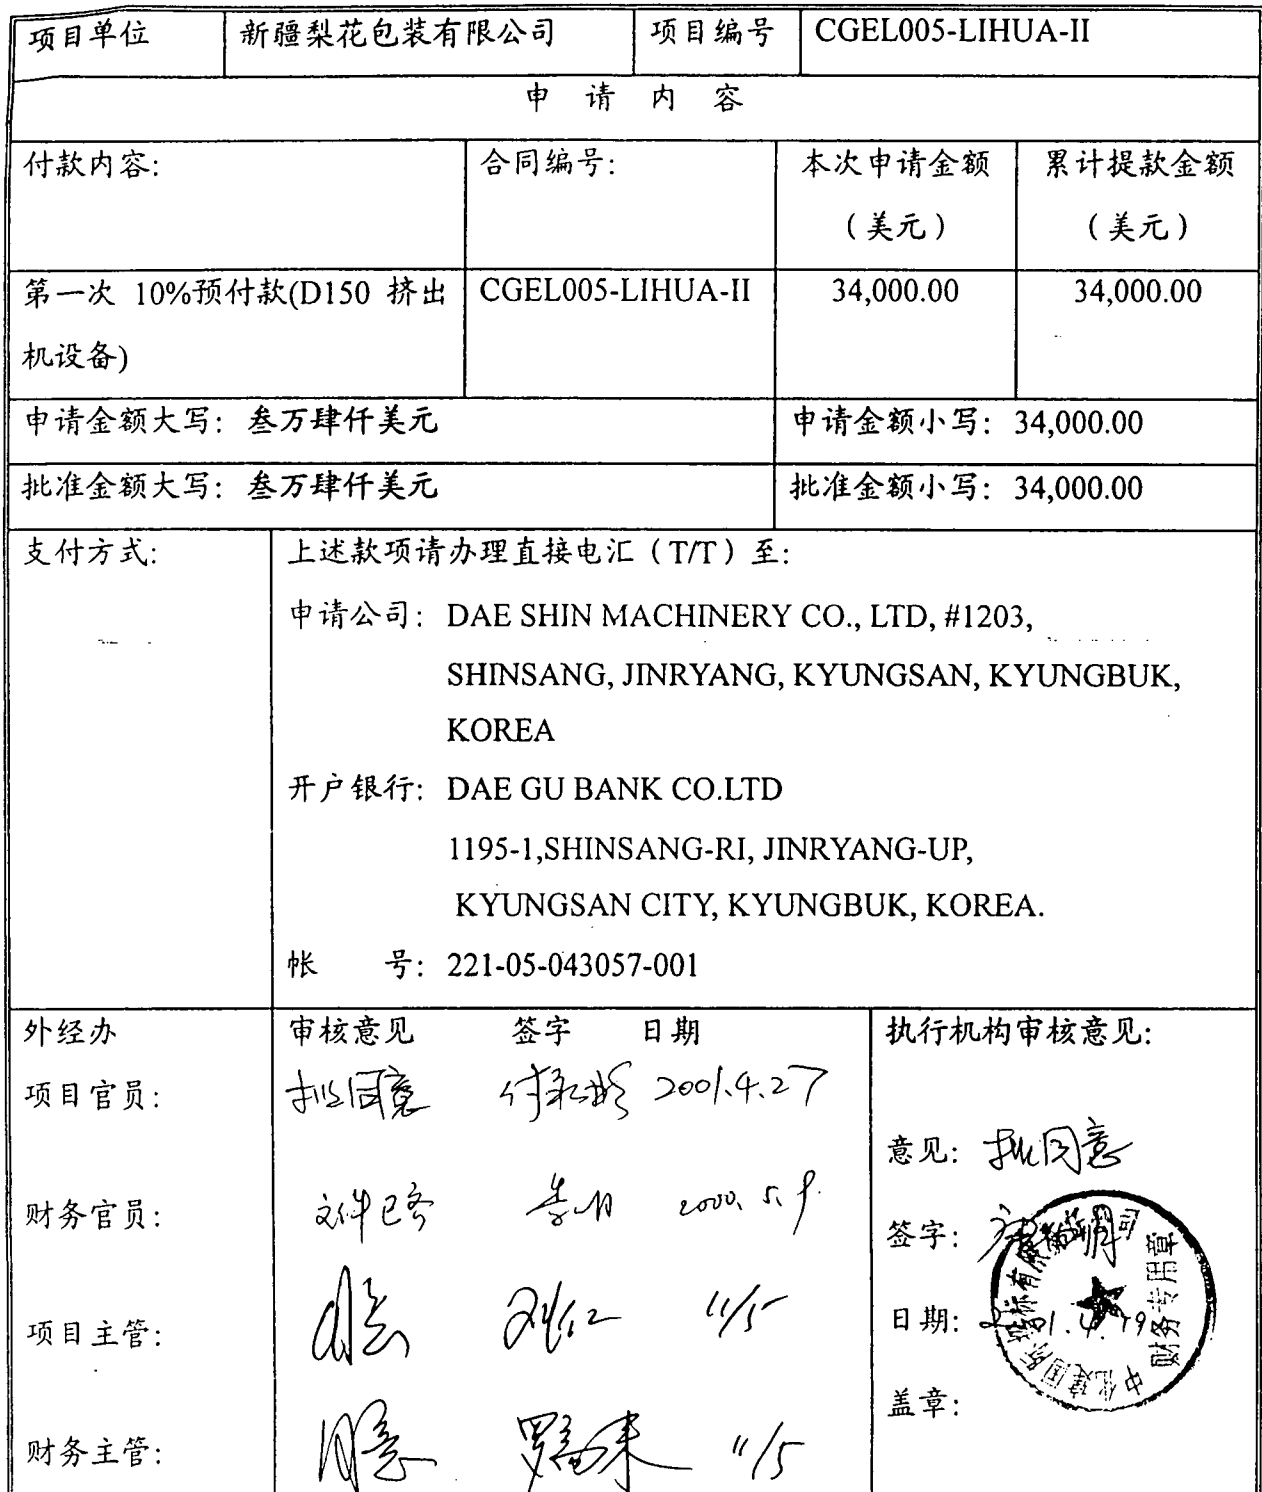 项目单位 新疆梨花包装有限公司 项目编号 CGEL005-LIHUA-II
申 请 内 容
付款内容: 合同编号: 本次申请金额 累计提款金额
（美元） （美元）
第一次 10%预付款(D150 挤出 CGEL005-LIHUA-II 34,000.00 34,000.00
机设备)
申请金额大写: 叁万肆仟美元 申请金额小写: 34,000.00
批准金额大写: 叁万肆仟美元 批准金额小写: 34,000.00
支付方式: 上述款项请办理直接电汇（T/T）至:
申请公司: DAE SHIN MACHINERY CO., LTD, #1203,
SHINSANG, JINRYANG, KYUNGSAN, KYUNGBUK,
KOREA
开户银行: DAE GU BANK CO.LTD
1195-1,SHINSANG-RI, JINRYANG-UP,
KYUNGSAN CITY, KYUNGBUK, KOREA.
帐 号: 221-05-043057-001
外经办 审核意见 签字 日期 执行机构审核意见:
项目官员: 拟同意 2001.4.27
意见: 拟同意
财务官员: 文件已备 2000. 5. 9.
签字:
项目主管: 同意 11/5
日期:
财务专用章
盖章:
财务主管: 同意 11/5